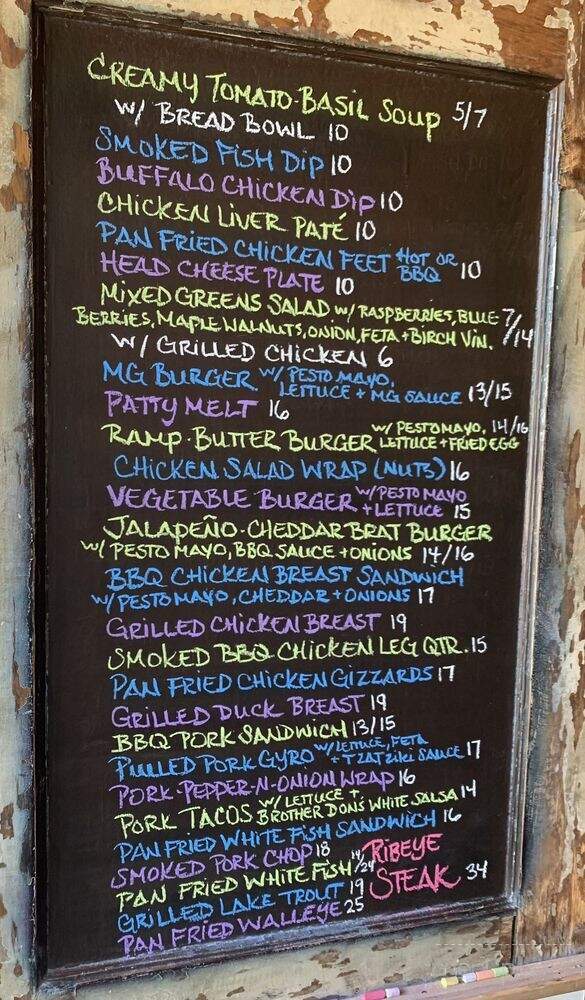 CREAMY TOMATO-BASIL SOUP 5/7
W/ BREAD BOWL 10
SMOKED FISH DIP 10
BUFFALO CHICKEN DIP 10
CHICKEN LIVER PATÉ 10
PAN FRIED CHICKEN FEET HOT OR BBQ 10
HEAD CHEESE PLATE 10
MIXED GREENS SALAD W/ RASPBERRIES, BLUE 7/14
BERRIES, MAPLE WALNUTS, ONION, FETA + BIRCH VIN.
W/ GRILLED CHICKEN 6
MG BURGER W/ PESTO MAYO, LETTUCE + MG SAUCE 13/15
PATTY MELT 16
RAMP-BUTTER BURGER W/ PESTO MAYO, LETTUCE + FRIED EGG 14/16
CHICKEN SALAD WRAP (NUTS) 16
VEGETABLE BURGER W/ PESTO MAYO + LETTUCE 15
JALAPEÑO-CHEDDAR BRAT BURGER
W/ PESTO MAYO, BBQ SAUCE + ONIONS 14/16
BBQ CHICKEN BREAST SANDWICH
W/ PESTO MAYO, CHEDDAR + ONIONS 17
GRILLED CHICKEN BREAST 19
SMOKED BBQ CHICKEN LEG QTR. 15
PAN FRIED CHICKEN GIZZARDS 17
GRILLED DUCK BREAST 19
BBQ PORK SANDWICH 13/15
PULLED PORK GYRO W/ LETTUCE, FETA + TZATZIKI SAUCE 17
PORK PEPPER-N-ONION WRAP 16
PORK TACOS W/ LETTUCE + BROTHER DON'S WHITE SALSA 14
PAN FRIED WHITE FISH SANDWICH 16
SMOKED PORK CHOP 18
PAN FRIED WHITE FISH 14/24
GRILLED LAKE TROUT 19
PAN FRIED WALLEYE 25
RIBEYE
STEAK 34